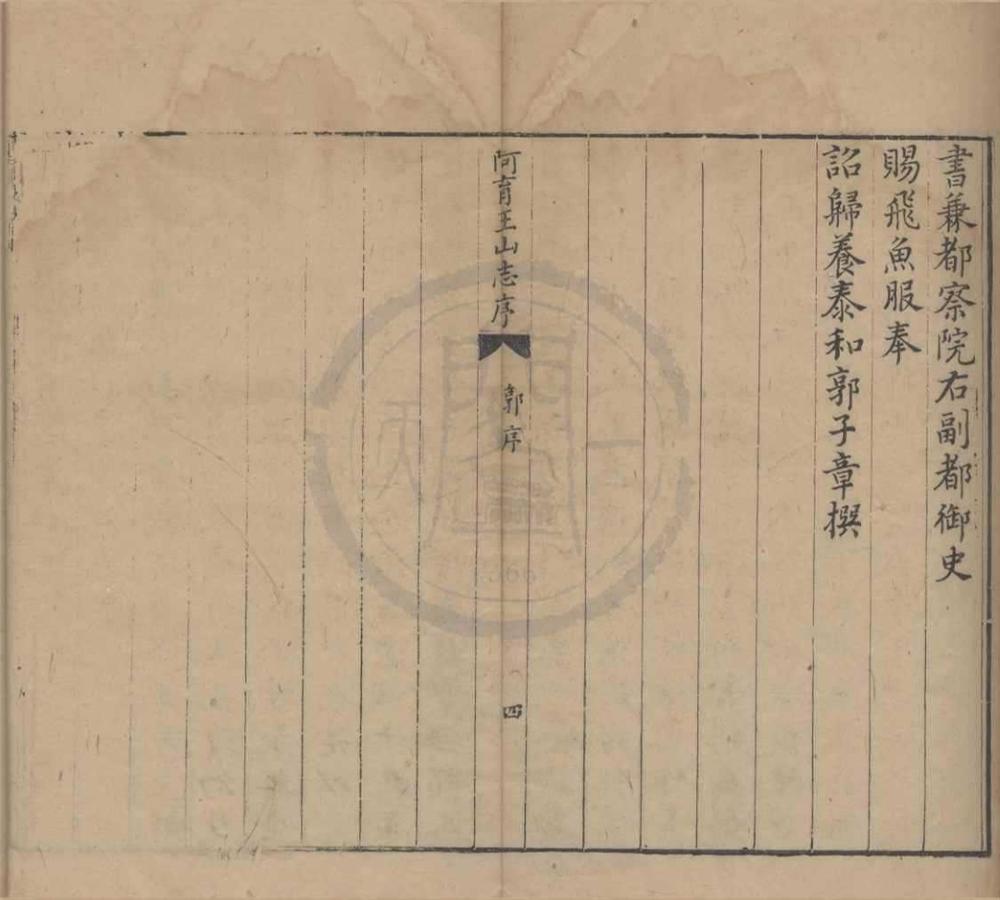 書兼都察院右副都御史
賜飛魚服奉
詔歸養泰和郭子章撰
阿育王山志序
郭序
四